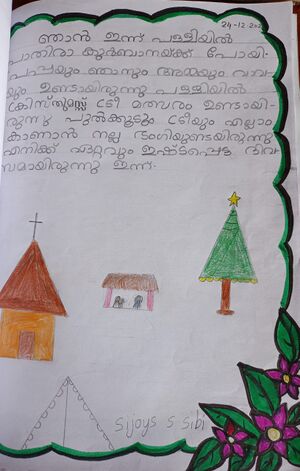 24-12-202
ഞാൻ ഇന്ന് പള്ളിയിൽ
പാതിരാ കുർബാനയ്ക്ക് പോയി.
പപ്പയും ഞാനും അമ്മയും വാവ
യും ഉണ്ടായിരുന്നു പള്ളിയിൽ
ക്രിസ്തുമസ്സ് ട്രീ മത്സരം ഉണ്ടായി
രുന്നു പുൽക്കൂടും ട്രീയും എല്ലാം
കാണാൻ നല്ല ഭംഗിയുണ്ടായിരുന്നു
എനിക്ക് ഏറ്റവും ഇഷ്ടപ്പെട്ട ദിവ
സമായിരുന്നു ഇന്ന്.
Sijoys S Sibi